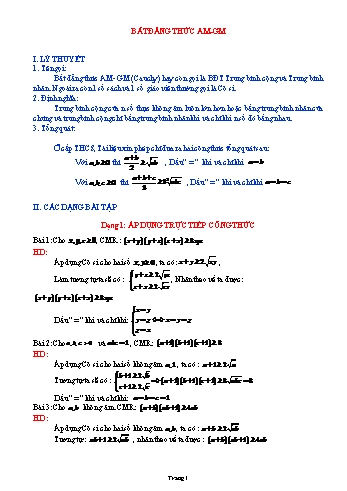 BẤT ĐẲNG THỨC AM-GM
I. LÝ THUYẾT
1. Tên gọi:
Bất đẳng thức AM- GM (Cauchy) hay còn gọi là BĐT Trung bình cộng và Trung bình
nhân. Ngoài ra còn 1 số cách và 1 số giáo viên thường gọi là Cô si.
2. Định nghĩa:
Trung bình cộng của n số thực không âm luôn lớn hơn hoặc bằng trung bình nhân của
chúng và trung bình cộng chỉ bằng trung bình nhân khi và chỉ khi n số đó bằng nhau.
3. Tổng quát:
Ở cấp THCS, Tài liệu xin phép chỉ đưa ra hai công thức tổng quát sau:
Với a,b≥0 thì a+b/2 ≥ √ab , Dấu " = " khi và chỉ khi a=b
Với a,b,c≥0 thì a+b+c/3 ≥ ∛abc , Dấu " = " khi và chỉ khi a=b=c
II. CÁC DẠNG BÀI TẬP
Dạng 1: ÁP DỤNG TRỰC TIẾP CÔNG THỨC
Bài 1: Cho x, y, z ≥ 0, CMR : (x+y)(y+z)(z+x)≥8xyz
HD:
Áp dụng Cô si cho hai số x, y≥0, ta có: x+y≥2√xy ,
Làm tương tự ta sẽ có : { y+z≥2√yz z+x≥2√zx , Nhân theo vế ta được:
(x+y)(y+z)(z+x)≥8xyz
Dấu " = " khi và chỉ khi: { x=y y=z z=x ⇔ x=y=z
Bài 2: Cho a,b,c >0 và abc=1, CMR: (a+1)(b+1)(c+1)≥8
HD:
Áp dụng Cô si cho hai số không âm a, 1, ta có : a+1≥2√a
Tương tự ta sẽ có : { b+1≥2√b c+1≥2√c ⇒(a+1)(b+1)(c+1)≥8√abc=8
Dấu " = " khi và chỉ khi: a=b=c=1
Bài 3: Cho a, b không âm. CMR: (a+b)(ab+1)≥4ab
HD:
Áp dụng Cô si cho hai số không âm a, b, ta có : a+b≥2√ab
Tương tự: ab+1≥2√ab , nhân theo vế ta được : (a+b)(ab+1)≥4ab
Trang 1